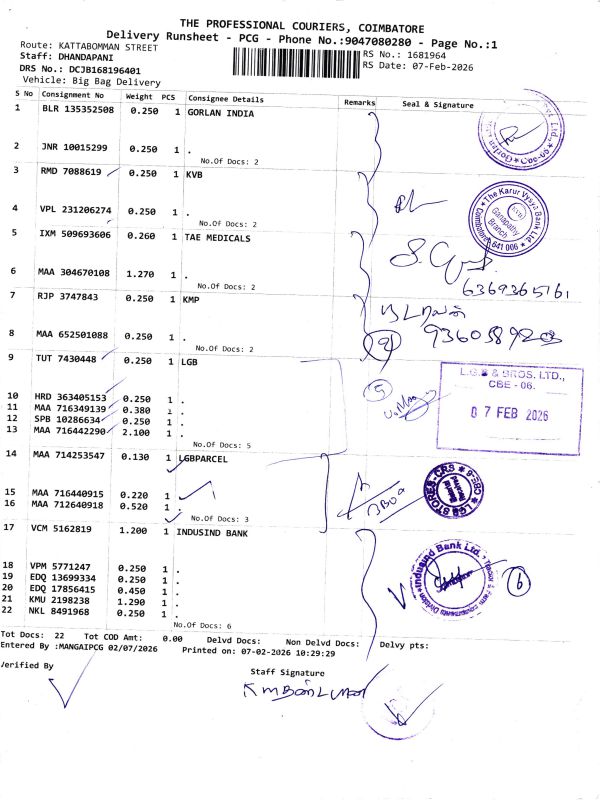 THE PROFESSIONAL COURIERS, COIMBATORE
Delivery Runsheet - PCG - Phone No.:9047080280 - Page No.:1
Route: KATTABOMMAN STREET
RS No.: 1681964
Staff: DHANDAPANI
RS Date: 07-Feb-2026
DRS No.: DCJB168196401
Vehicle: Big Bag Delivery
S No Consignment No Weight PCS Consignee Details Remarks Seal & Signature
1 BLR 135352508 0.250 1 GORLAN INDIA
2 JNR 10015299 0.250 1 .
No.Of Docs: 2
3 RMD 7088619 0.250 1 KVB
4 VPL 231206274 0.250 1 .
No.Of Docs: 2
The Karur Vysya Bank Ltd
Ganapathy Branch
Coimbatore 641 006
5 IXM 509693606 0.260 1 TAE MEDICALS
6 MAA 304670108 1.270 1 .
No.Of Docs: 2
6369365161
7 RJP 3747843 0.250 1 KMP
8 MAA 652501088 0.250 1 .
No.Of Docs: 2
9 TUT 7430448 0.250 1 LGB
L.G.B & BROS. LTD.,
CBE - 06.
07 FEB 2026
10 HRD 363405153 0.250 1 .
11 MAA 716349139 0.380 1 .
12 SPB 10286634 0.250 1 .
13 MAA 716442290 2.100 1 .
No.Of Docs: 5
14 MAA 714253547 0.130 1 LGBPARCEL
15 MAA 716440915 0.220 1 .
16 MAA 712640918 0.520 1 .
No.Of Docs: 3
LGB STORES-CRS
CBE-6
17 VCM 5162819 1.200 1 INDUSIND BANK
18 VPM 5771247 0.250 1 .
19 EDQ 13699334 0.250 1 .
20 EDQ 17856415 0.450 1 .
21 KMU 2198238 1.290 1 .
22 NKL 8491968 0.250 1 .
No.Of Docs: 6
IndusInd Bank Ltd.
6
Tot Docs: 22 Tot COD Amt: 0.00 Delvd Docs: Non Delvd Docs: Delvy pts:
Entered By :MANGAIPCG 02/07/2026 Printed on: 07-02-2026 10:29:29
Verified By
Staff Signature